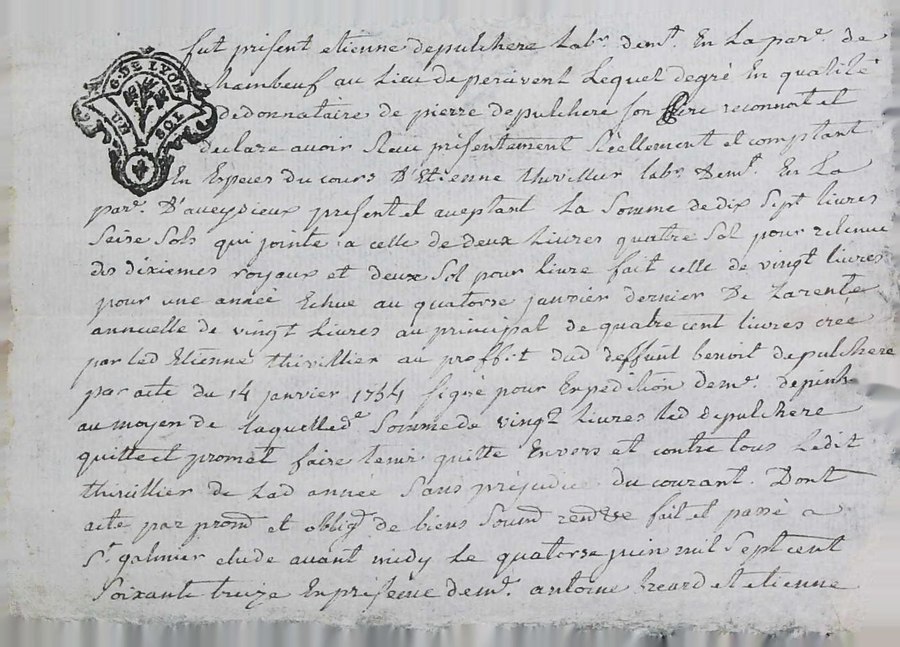 G. DE LYON
UN SOL
fut présent etienne depulchere labr. demt. En La parr. de
Chambeuf au Lieu de percivent Lequel degré En qualité
de donnataire de pierre depulchere son frere reconnoit et
declare avoir Receu présentement Réellement et comptant
En Especes du cours D'Etienne thivillier labr. Demt. En La
parr. D'aveyzieux présent et aceptant La Somme de dix Sept livres
Seise Sols qui jointe a celle de deux Livres quatre Sol pour retenue
des dixiemes royaux et deux Sol pour Livre fait celle de vingt livres
pour une année Echue au quatorse janvier dernier De Larente
annuelle de vingt Livres au principal de quatre cent livres creé
par led Etienne thivillier au proffit dud deffunt benoit depulchere
par acte du 14 janvier 1754 signé pour Expedition de me.
au moyen de laquelle de. Somme de vingt Livres led depulchere
quitte et promet faire tenir quitte Envers et contre tous Ledit
thivillier de Lad année Sans préjudice du courant. Dont
acte par prom et oblig de biens Soum renon fait et passé a
St. galmier etude avant midy Le quatorse juin mil Sept cent
Soixante treize En présence de me. antoine et etienne